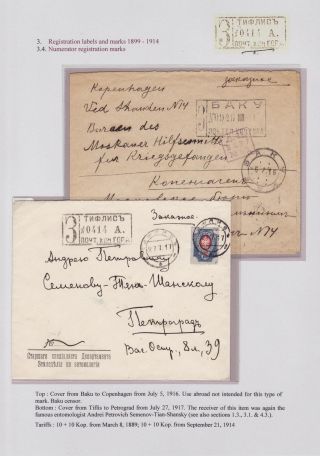 3. Registration labels and marks 1899 - 1914
3.4. Numerator registration marks
ТИФЛИСЪ
3 №0414 А.
ПОЧТ. КОНТОРА
Копенгаген
заказное
БАКУ
Bureau des
Moskauer Hilfscomite
für Kriegsgefangene
Копенгаген
Московское бюро
ТИФЛИСЪ
3 №0414 А.
ПОЧТ. КОНТОРА
Заказное
Андрею Петровичу
Семенову-Тянь-Шанскому
Петроградъ
Вас. Остр., 8 л., 39
Старшаго спеціалиста Департамента
Земледѣлія по энтомологіи
Top : Cover from Baku to Copenhagen from July 5, 1916. Use abroad not intended for this type of
mark. Baku censor.
Bottom : Cover from Tiflis to Petrograd from July 27, 1917. The receiver of this item was again the
famous entomologist Andrei Petrovich Semenov-Tian-Shansky (see also sections 1.3., 3.1. & 4.3.).
Tariffs : 10 + 10 Kop. from March 8, 1889; 10 + 10 Kop. from September 21, 1914